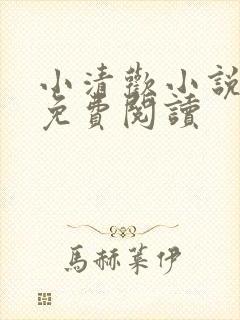 小清歡小說
免費閱讀
馬赫葉伊